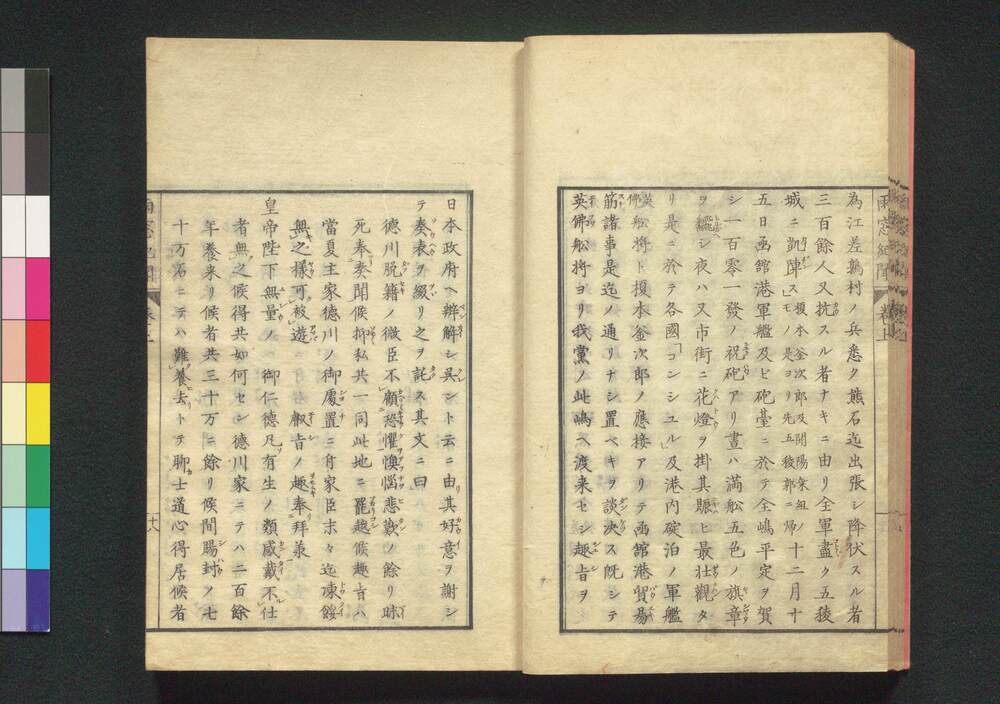 雨窓紀聞 巻上
為江差鶉村ノ兵悉ク熊石迄出張シ降伏スル者
三百餘人又抗スル者ナキニ由リ全軍盡ク五稜
城ニ凱陣ス 榎本釜次郎及開陽朱組ノモノ是ヨリ先五稜郭ニ帰 十二月十
五日函館港軍艦及ビ砲臺ニ於テ全嶋平定ヲ賀
シ一百零一發ノ祝砲アリ晝ハ満舩五色ノ旗章
ヲ飜シ夜ハ又市街ニ花燈ヲ掛其賑ヒ最壮觀タ
リ是ニ於テ各國「コンシユル」及港内碇泊ノ軍艦
英佛舩将ト榎本釜次郎ノ應接アリテ函館港貿昜
筋諸事是迄ノ通リナシ置ベキヲ談決ス既シテ
英佛舩将ヨリ我黨ノ此嶋ヘ渡来セシ趣旨ヲ
日本政府ヘ辨解シ呉ント云ニ由其好意ヲ謝シ
テ奏表ヲ綴リ之ヲ託ス其文ニ曰
徳川脱籍ノ微臣不顧恐懼懊悩悲歎ノ餘リ昧
死奉奏聞候抑私共一同此地ニ罷越候趣旨ハ
當夏主家徳川ノ御處置ニ付家臣末々迄凍餒
無之様可被遊 叡旨ノ趣奉拜兼
皇帝陛下無量ノ 御仁德凡有生ノ類感戴不仕
者無之候得共如何セン德川家ニテハ二百餘
年養来リ候者共三十万ニ餘リ候間賜封ノ七
十万石ニテハ難養去トテ聊士道心得居候者
雨窓紀聞 巻上 十八